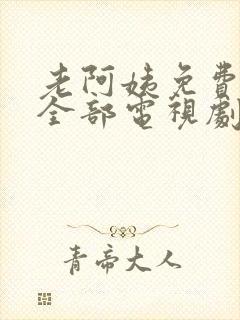 老阿姨免費
全部電視劇
青帝大人